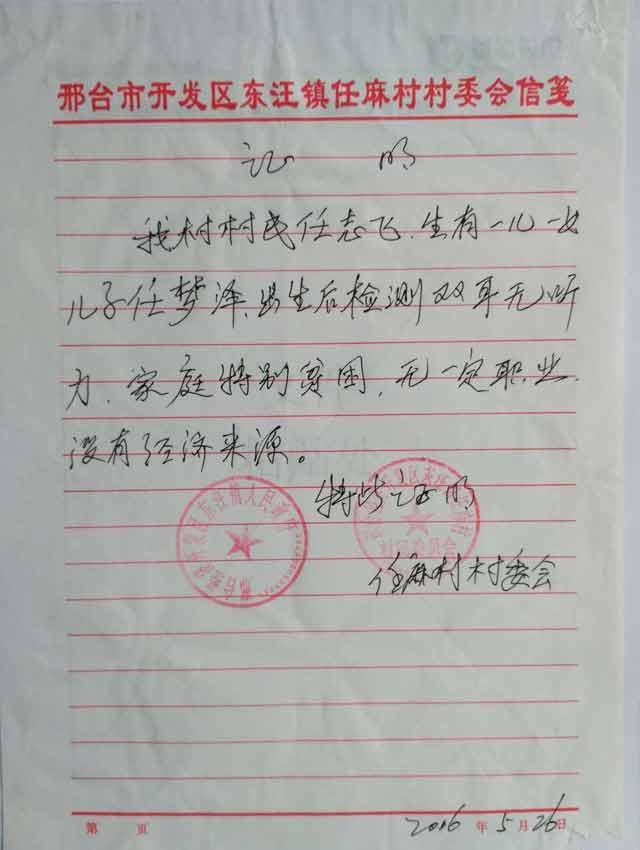 邢台市开发区东汪镇任麻村村委会信笺
证 明
我村村民任志飞.生有一儿一女
儿子任梦泽.出生后检测双耳无听
力.家庭特别贫困,无一定职业.
没有经济来源。
特此证明
任麻村村委会
第 页 2016 年 5 月 26 日